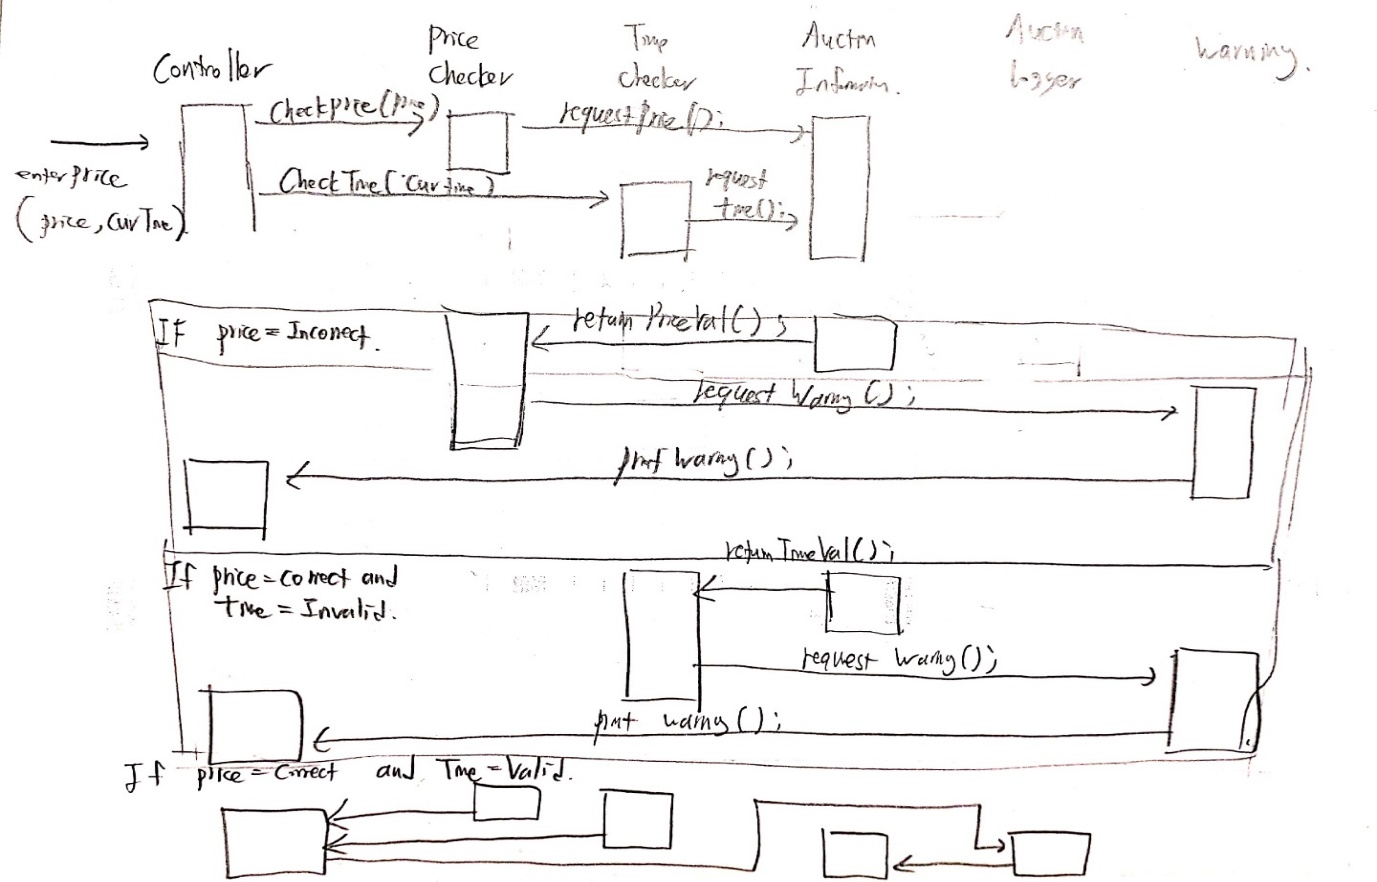 Controller
Price
checker
Time
checker
Auction
Information.
Auction
logger
Warning.
Checkprice(price)
requestprice();
enterprice
(price, curTime)
CheckTime(curtime)
request
time();
If price = Incorrect.
return PriceVal();
request Warning();
print warning();
return TimeVal();
If price = correct and
time = Invalid.
request warning();
print warning();
If price = Correct and Time = Valid.